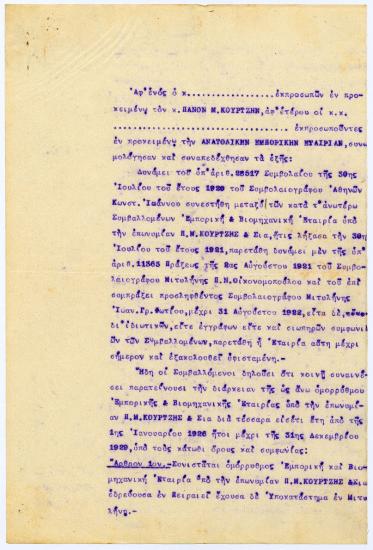 Ἀφ'ἑνός ὁ κ................... ἐκπροσωπῶν ἐν προ-
κειμένῳ τόν κ.ΠΑΝΟΝ Μ.ΚΟΥΡΤΖΗΝ,ἀφ'ἑτέρου οἱ κ.κ.
................................ ἐκπροσωποῦντες
ἐν προκειμένῳ τήν ΑΝΑΤΟΛΙΚΗΝ ΕΜΠΟΡΙΚΗΝ ΕΤΑΙΡΙΑΝ,συνω
μολόγησαν καί συναπεδέχθησαν τά ἑξῆς:
Δυνάμει τοῦ ὑπ'ἀριθ.28517 Συμβολαίου τῆς 30ης
Ἰουλίου τοῦ ἔτους 1920 τοῦ Συμβολαιογράφου Ἀθηνῶν
Κωνστ. Ἰωάννου συνεστήθη μεταξύ τῶν κατά τ'ἀνωτέρω
Συμβαλλομένων Ἐμπορική & Βιομηχανική Ἑταιρία ὑπό
τήν ἐπωνυμίαν Π.Μ.ΚΟΥΡΤΖΗΣ & Σια,ἥτις λήξασα τήν 30ην
Ἰουλίου τοῦ ἔτους 1921,παρετάθη δυνάμει μέν τῆς ὑπ'
ἀριθ.11363 Πράξεως τῆς 2ας Αὐγούστου 1921 τοῦ Συμβο-
λαιογράφου Μιτυλήνης Π.Ν.Οἰκονομοπούλου καί τοῦ ἐπί
συμπράξει προσληφθέντος Συμβολαιογράφου Μιτυλήνης
Ἰωαν.Γρ.Φωτίου,μέχρι 31 Αὐγούστου 1922,εἶτα δέ,
δι'ἰδιωτικῶν,εἴτε ἐγγράφων εἴτε καί σιωπηρῶν συμφωνι-
ῶν τῶν Συμβαλλομένων,παρετάθη ἡ Ἑταιρία αὕτη μέχρι
σήμερον καί ἐξακολουθεῖ ὑφισταμένη.-
Ἤδη οἱ Συμβαλλόμενοι δηλοῦσι ὅτι κοινῇ συναινέ-
σει παρατείνουσι τήν διάρκειαν τῆς ὡς ἄνω ὁμορρύθμου
Ἐμπορικῆς & Βιομηχανικῆς Ἑταιρίας ὑπό τήν ἐπωνυμί-
αν Π.Μ.ΚΟΥΡΤΖΗΣ & Σια διά τέσσαρα εἰσέτι ἔτη ἀπό τῆς
1ης Ἰανουαρίου 1926 ἤτοι μέχρι τῆς 31ης Δεκεμβρίου
1929,ὑπό τούς κάτωθι ὅρους καί συμφωνίας:
"Ἄρθρον 1ον.-Συνιστᾶται ὁμόρρυθμος Ἐμπορική καί Βιο-
μηχανική Ἑταιρία ὑπό τήν ἐπωνυμίαν Π.Μ.ΚΟΥΡΤΖΗΣ &Σια
ἑδρεύουσα ἐν Πειραιεῖ ἔχουσα δέ Ὑποκατάστημα ἐν Μιτυ-
λήνῃ.-